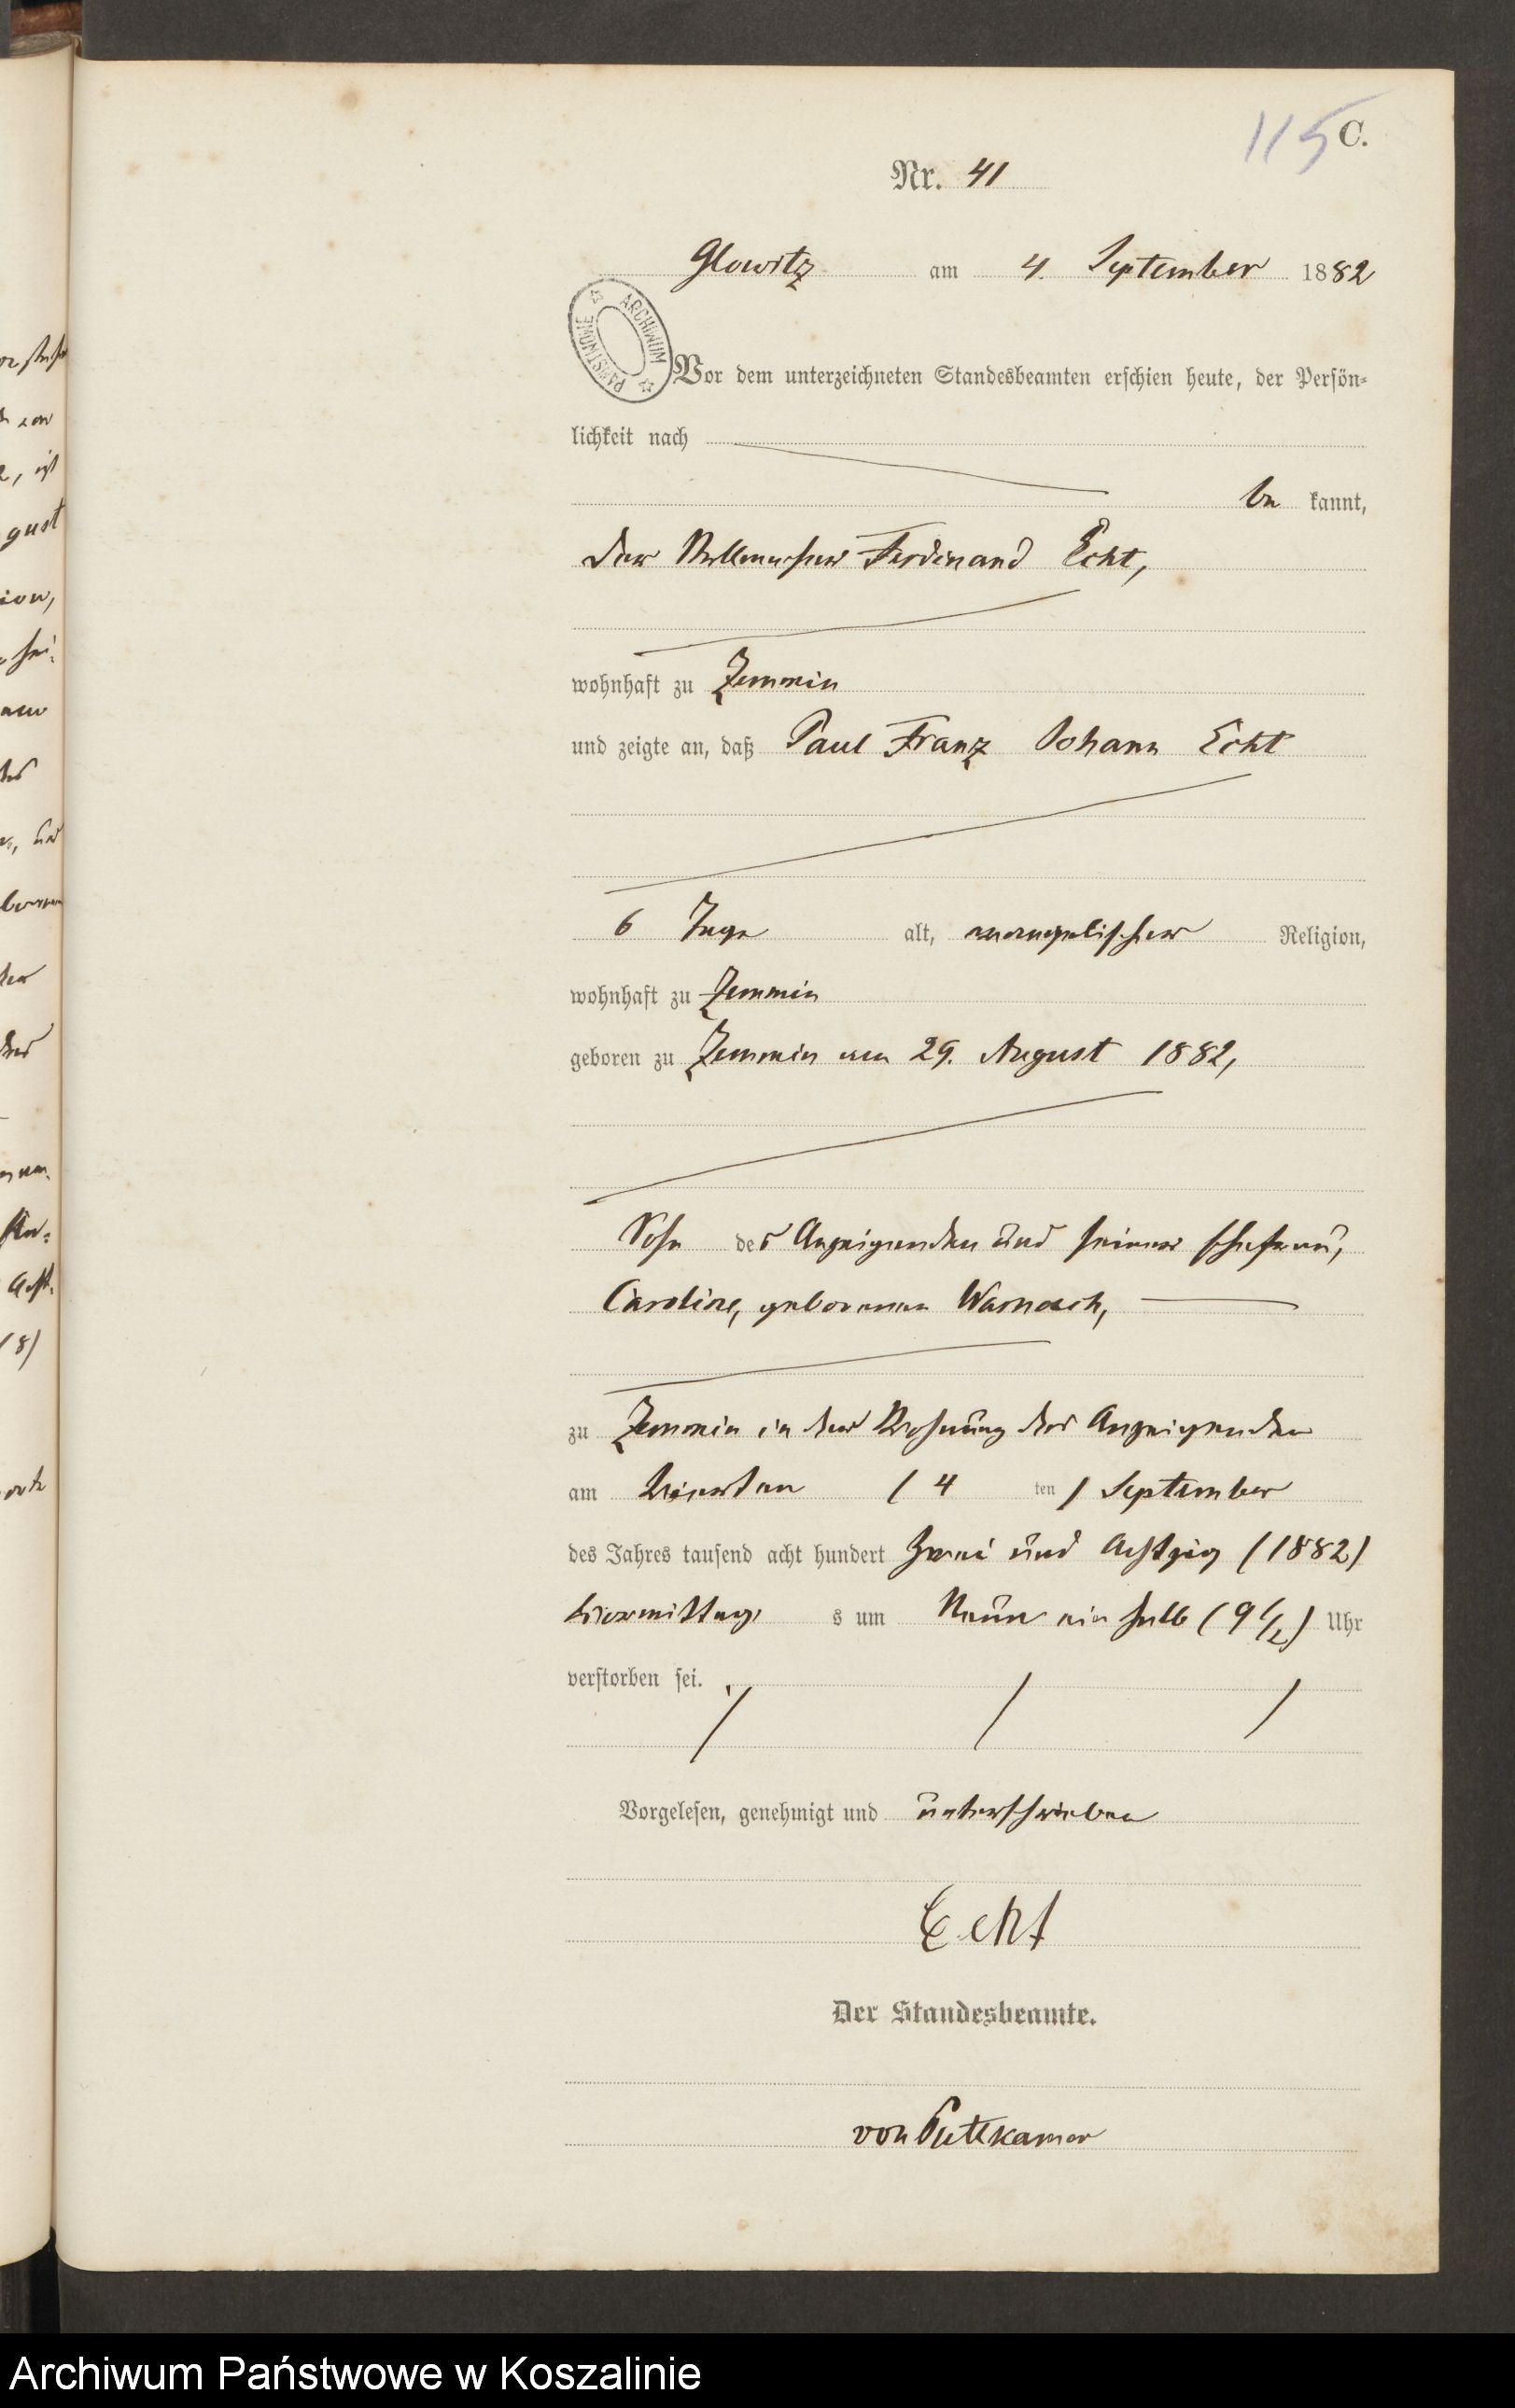 115 C.
Nr. 41
Glowitz am 4. September 1882
ARCHIWUM PAŃSTWOWE
Vor dem unterzeichneten Standesbeamten erschien heute, der Persön-
lichkeit nach
be kannt,
der Ferdinand Echt,
wohnhaft zu Zemmin
und zeigte an, daß Paul Franz Johann Echt
6 Tage alt, evangelischer Religion,
wohnhaft zu Zemmin
geboren zu Zemmin am 29. August 1882,
Sohn des Anzeigenden und seiner Ehefrau,
Caroline, geborenen
zu Zemmin in der Wohnung des Anzeigenden
am Vierten (4 ten) September
des Jahres tausend acht hundert Zwei und Achtzig (1882)
Vormittag s um Neun ein halb (9 1/2) Uhr
verstorben sei.
Vorgelesen, genehmigt und unterschrieben
Echt
Der Standesbeamte.
von Puttkamer
Archiwum Państwowe w Koszalinie